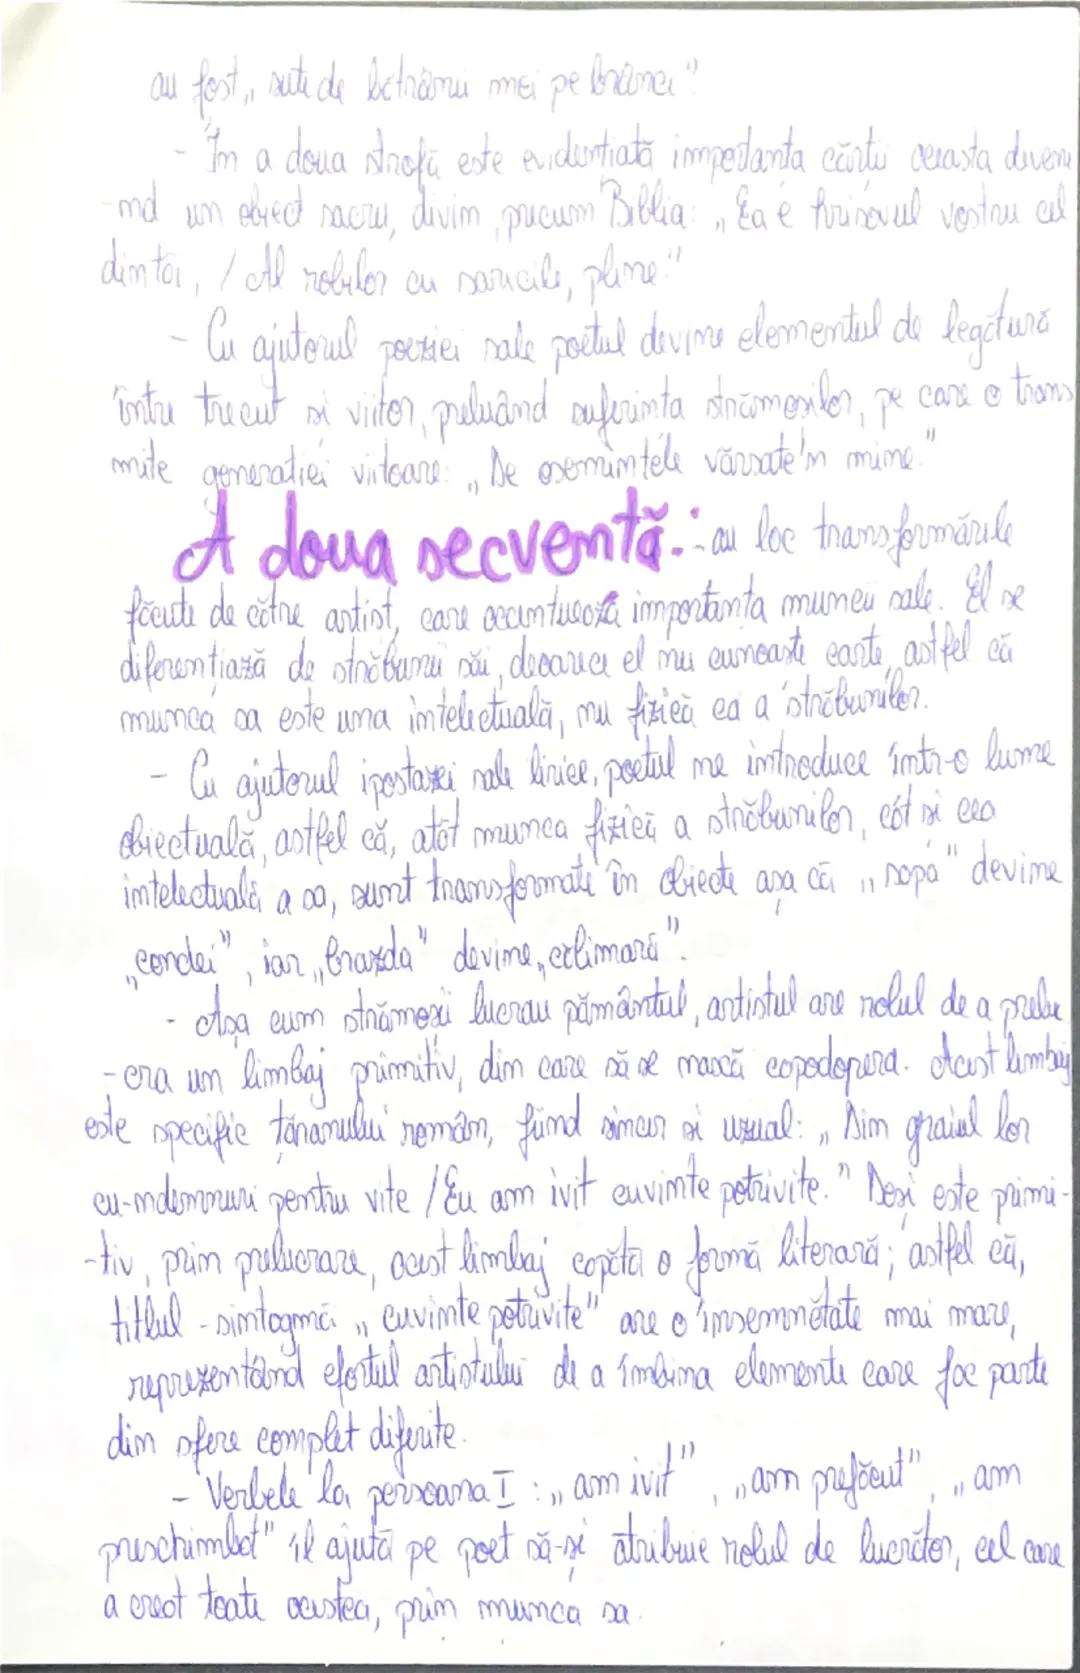 au fost „suite de bătrânii mei pe brânci"
- În a doua strofă este evidențiată importanța cărții ceasta deveni
-nd un obiect sacru, divim, precum Biblia: „Ea e hrisovul vostru cel
dintâi, / Al robilor cu saricile, pline."
- Cu ajutorul poeziei sale poetul devine elementul de legătură
între trecut si viitor, preluând suferința strămoșilor, pe care o trans
mite generatiei viitoare: „De osemintele vărsate'n mine."
A doua secvență: - au loc transformările
făcute de către artist, care accentuează importanța muncii sale. El se
diferențiază de străbunii săi, deoarece el nu cunoaste carte, astfel că
munca sa este una intelectuală, nu fizică ca a străbunilor.
- Cu ajutorul ipostazei sale lirice, poetul ne introduce într-o lume
obiectuală, astfel că, atât munca fizică a străbunilor, cât si cea
intelectuală a sa, sunt transformate în obiecte așa că „sapa" devine
„condei", iar „brazda" devine „călimară".
- Așa cum strămoșii lucrau pământul, artistul are rolul de a prelu
-cra un limbaj primitiv, din care să se nască capodopera. Acest limbaj
este specific țăranului român, fiind sincer si uzual: „Din graiul lor
cu-ndemnuri pentru vite / Eu am ivit cuvinte potrivite." Deși este primi-
-tiv, prin prelucrare, acest limbaj capătă o formă literară; astfel că,
titlul - sintagmă „cuvinte potrivite" are o însemnătate mai mare,
reprezentând efortul artistului de a îmbina elemente care fac parte
din sfere complet diferite.
- Verbele la persoana I: „am ivit", „am prefăcut", „am
preschimbat" îl ajută pe poet să-și atribuie rolul de lucrător, cel care
a creat toate acestea, prin munca sa.